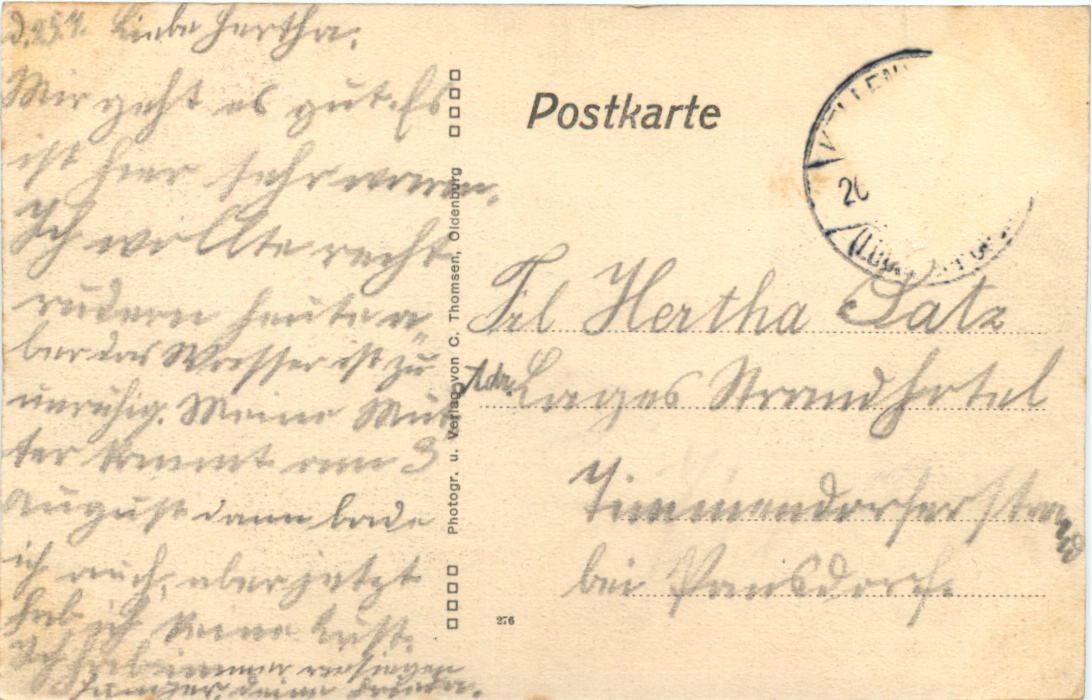 d. 25.7. Liebe Hertha.
Mir geht es gut. Es
ist hier sehr warm.
Ich wollte recht
rudern heute a
ber das Wasser ist zu
unruhig. Meine Mut
ter kommt am 3
August dann bade
ich auch, aber jetzt
hab ich keine Lust.
Ich hab immer
deine
Postkarte
Photogr. u. Verlag von C. Thomsen, Oldenburg
276
KELLEN
20
(LÜB
Frl Hertha Satz
Adr. Lages Strandhotel
Timmendorferstrand
bei Pansdorf.